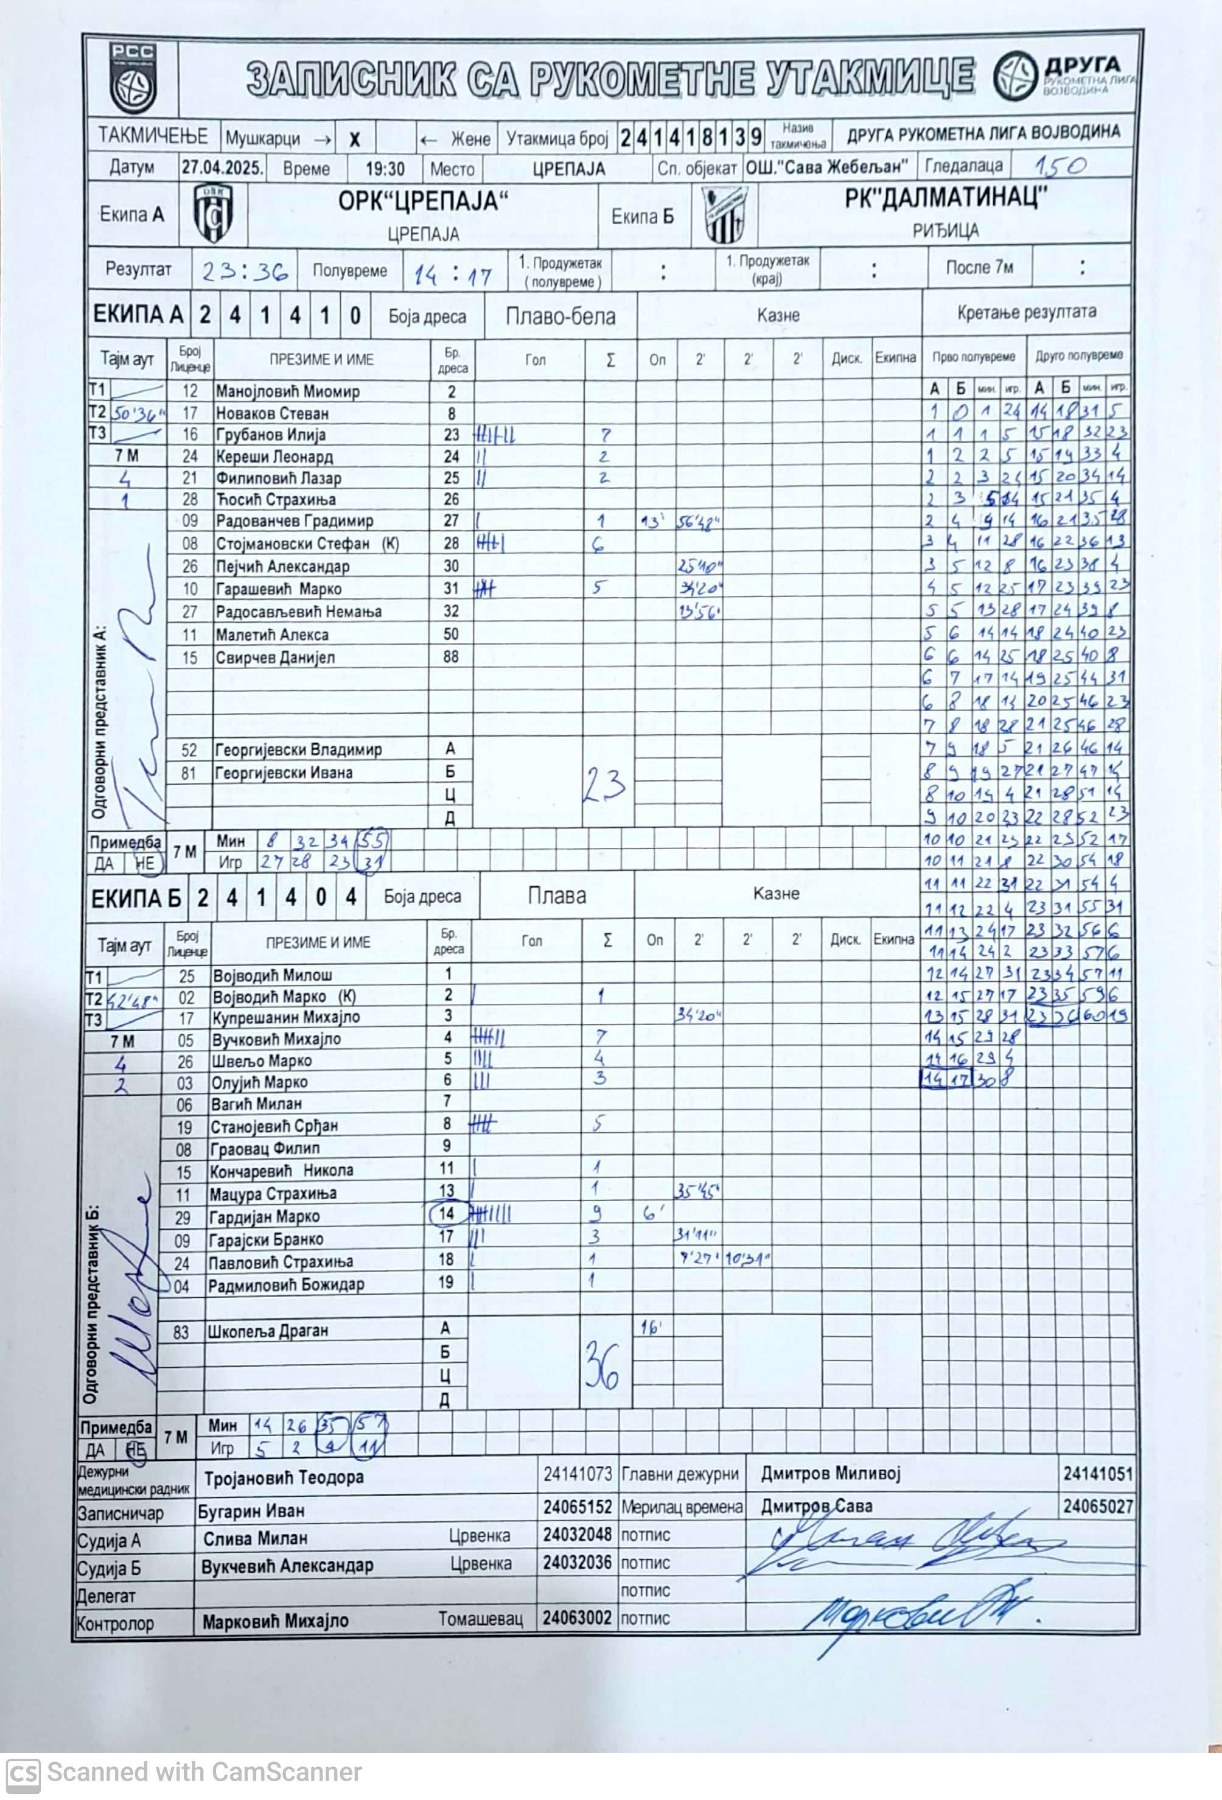 РСС
ЗАПИСНИК СА РУКОМЕТНЕ УТАКМИЦЕ
ДРУГА
РУКОМЕТНА ЛИГА
ВОЈВОДИНА
ТАКМИЧЕЊЕ Мушкарци → X ← Жене Утакмица број 241418139 Назив такмичења ДРУГА РУКОМЕТНА ЛИГА ВОЈВОДИНА
Датум 27.04.2025. Време 19:30 Место ЦРЕПАЈА Сп. објекат ОШ."Сава Жебељан" Гледалаца 150
Екипа А ОРК“ЦРЕПАЈА“ ЦРЕПАЈА Екипа Б РК"ДАЛМАТИНАЦ" РИЂИЦА
Резултат 23:36 Полувреме 14:17 1. Продужетак (полувреме) : 1. Продужетак (крај) : После 7м :
ЕКИПА А 2 4 1 4 1 0 Боја дреса Плаво-бела Казне Кретање резултата
Тајм аут Број Лиценце ПРЕЗИМЕ И ИМЕ Бр. дреса Гол Σ Оп 2' 2' 2' Диск. Екипна Прво полувреме Друго полувреме
А Б мин. игр. А Б мин. игр.
Т1 12 Манојловић Миомир 2
Т2 50'36" 17 Новаков Стеван 8 1 0 1 24 14 18 31 5
Т3 16 Грубанов Илија 23 7 1 1 1 5 15 18 32 23
7 М 24 Кереши Леонард 24 2 1 2 2 5 15 19 33 4
4 21 Филиповић Лазар 25 2 2 2 3 24 15 20 34 14
1 28 Ћосић Страхиња 26 2 3 5 14 15 21 35 4
09 Радованчев Градимир 27 1 13' 56'48" 2 4 9 14 16 21 35 28
08 Стојмановски Стефан (К) 28 6 3 4 11 28 16 22 36 13
26 Пејчић Александар 30 25'10" 3 5 12 8 16 23 38 4
10 Гарашевић Марко 31 5 34'20" 4 5 12 25 17 23 39 23
27 Радосављевић Немања 32 13'56" 5 5 13 28 17 24 39 8
11 Малетић Алекса 50 5 6 14 14 18 24 40 23
15 Свирчев Данијел 88 6 6 14 25 18 25 40 8
6 7 17 14 19 25 44 31
6 8 18 14 20 25 46 23
7 8 18 28 21 25 46 28
52 Георгијевски Владимир А 7 9 18 5 21 26 46 14
81 Георгијевски Ивана Б 23 8 9 19 27 21 27 47 14
Ц 8 10 19 4 21 28 51 14
Д 9 10 20 23 22 28 52 23
Одговорни представник А:
Примедба ДА НЕ 7 М Мин 8 32 34 55 10 10 21 23 22 29 52 17
Игр 27 28 23 31 10 11 21 8 22 30 54 18
ЕКИПА Б 2 4 1 4 0 4 Боја дреса Плава Казне 11 11 22 31 22 31 54 4
11 12 22 4 23 31 55 31
Тајм аут Број Лиценце ПРЕЗИМЕ И ИМЕ Бр. дреса Гол Σ Оп 2' 2' 2' Диск. Екипна 11 13 24 17 23 32 56 6
11 14 24 2 23 33 57 6
Т1 25 Војводић Милош 1 12 14 27 31 23 34 57 11
Т2 42'48" 02 Војводић Марко (К) 2 1 12 15 27 17 23 35 59 6
Т3 17 Купрешанин Михајло 3 34'20" 13 15 28 31 23 36 60 19
7 М 05 Вучковић Михајло 4 7 14 15 29 28
4 26 Швељо Марко 5 4 14 16 29 4
2 03 Олујић Марко 6 3 14 17 30 8
06 Вагић Милан 7
19 Станојевић Срђан 8 5
08 Граовац Филип 9
15 Кончаревић Никола 11 1
11 Мацура Страхиња 13 1 35'45"
29 Гардијан Марко 14 9 6'
09 Гарајски Бранко 17 3 31'11"
24 Павловић Страхиња 18 1 7'27" 10'31"
04 Радмиловић Божидар 19 1
83 Шкопеља Драган А 16'
Б 36
Ц
Д
Одговорни представник Б:
Примедба ДА НЕ 7 М Мин 14 26 35 57
Игр 5 2 9 11
Дежурни медицински радник Тројановић Теодора 24141073 Главни дежурни Дмитров Миливој 24141051
Записничар Бугарин Иван 24065152 Мерилац времена Дмитров Сава 24065027
Судија А Слива Милан Црвенка 24032048 потпис
Судија Б Вукчевић Александар Црвенка 24032036 потпис
Делегат потпис
Контролор Марковић Михајло Томашевац 24063002 потпис
CS Scanned with CamScanner